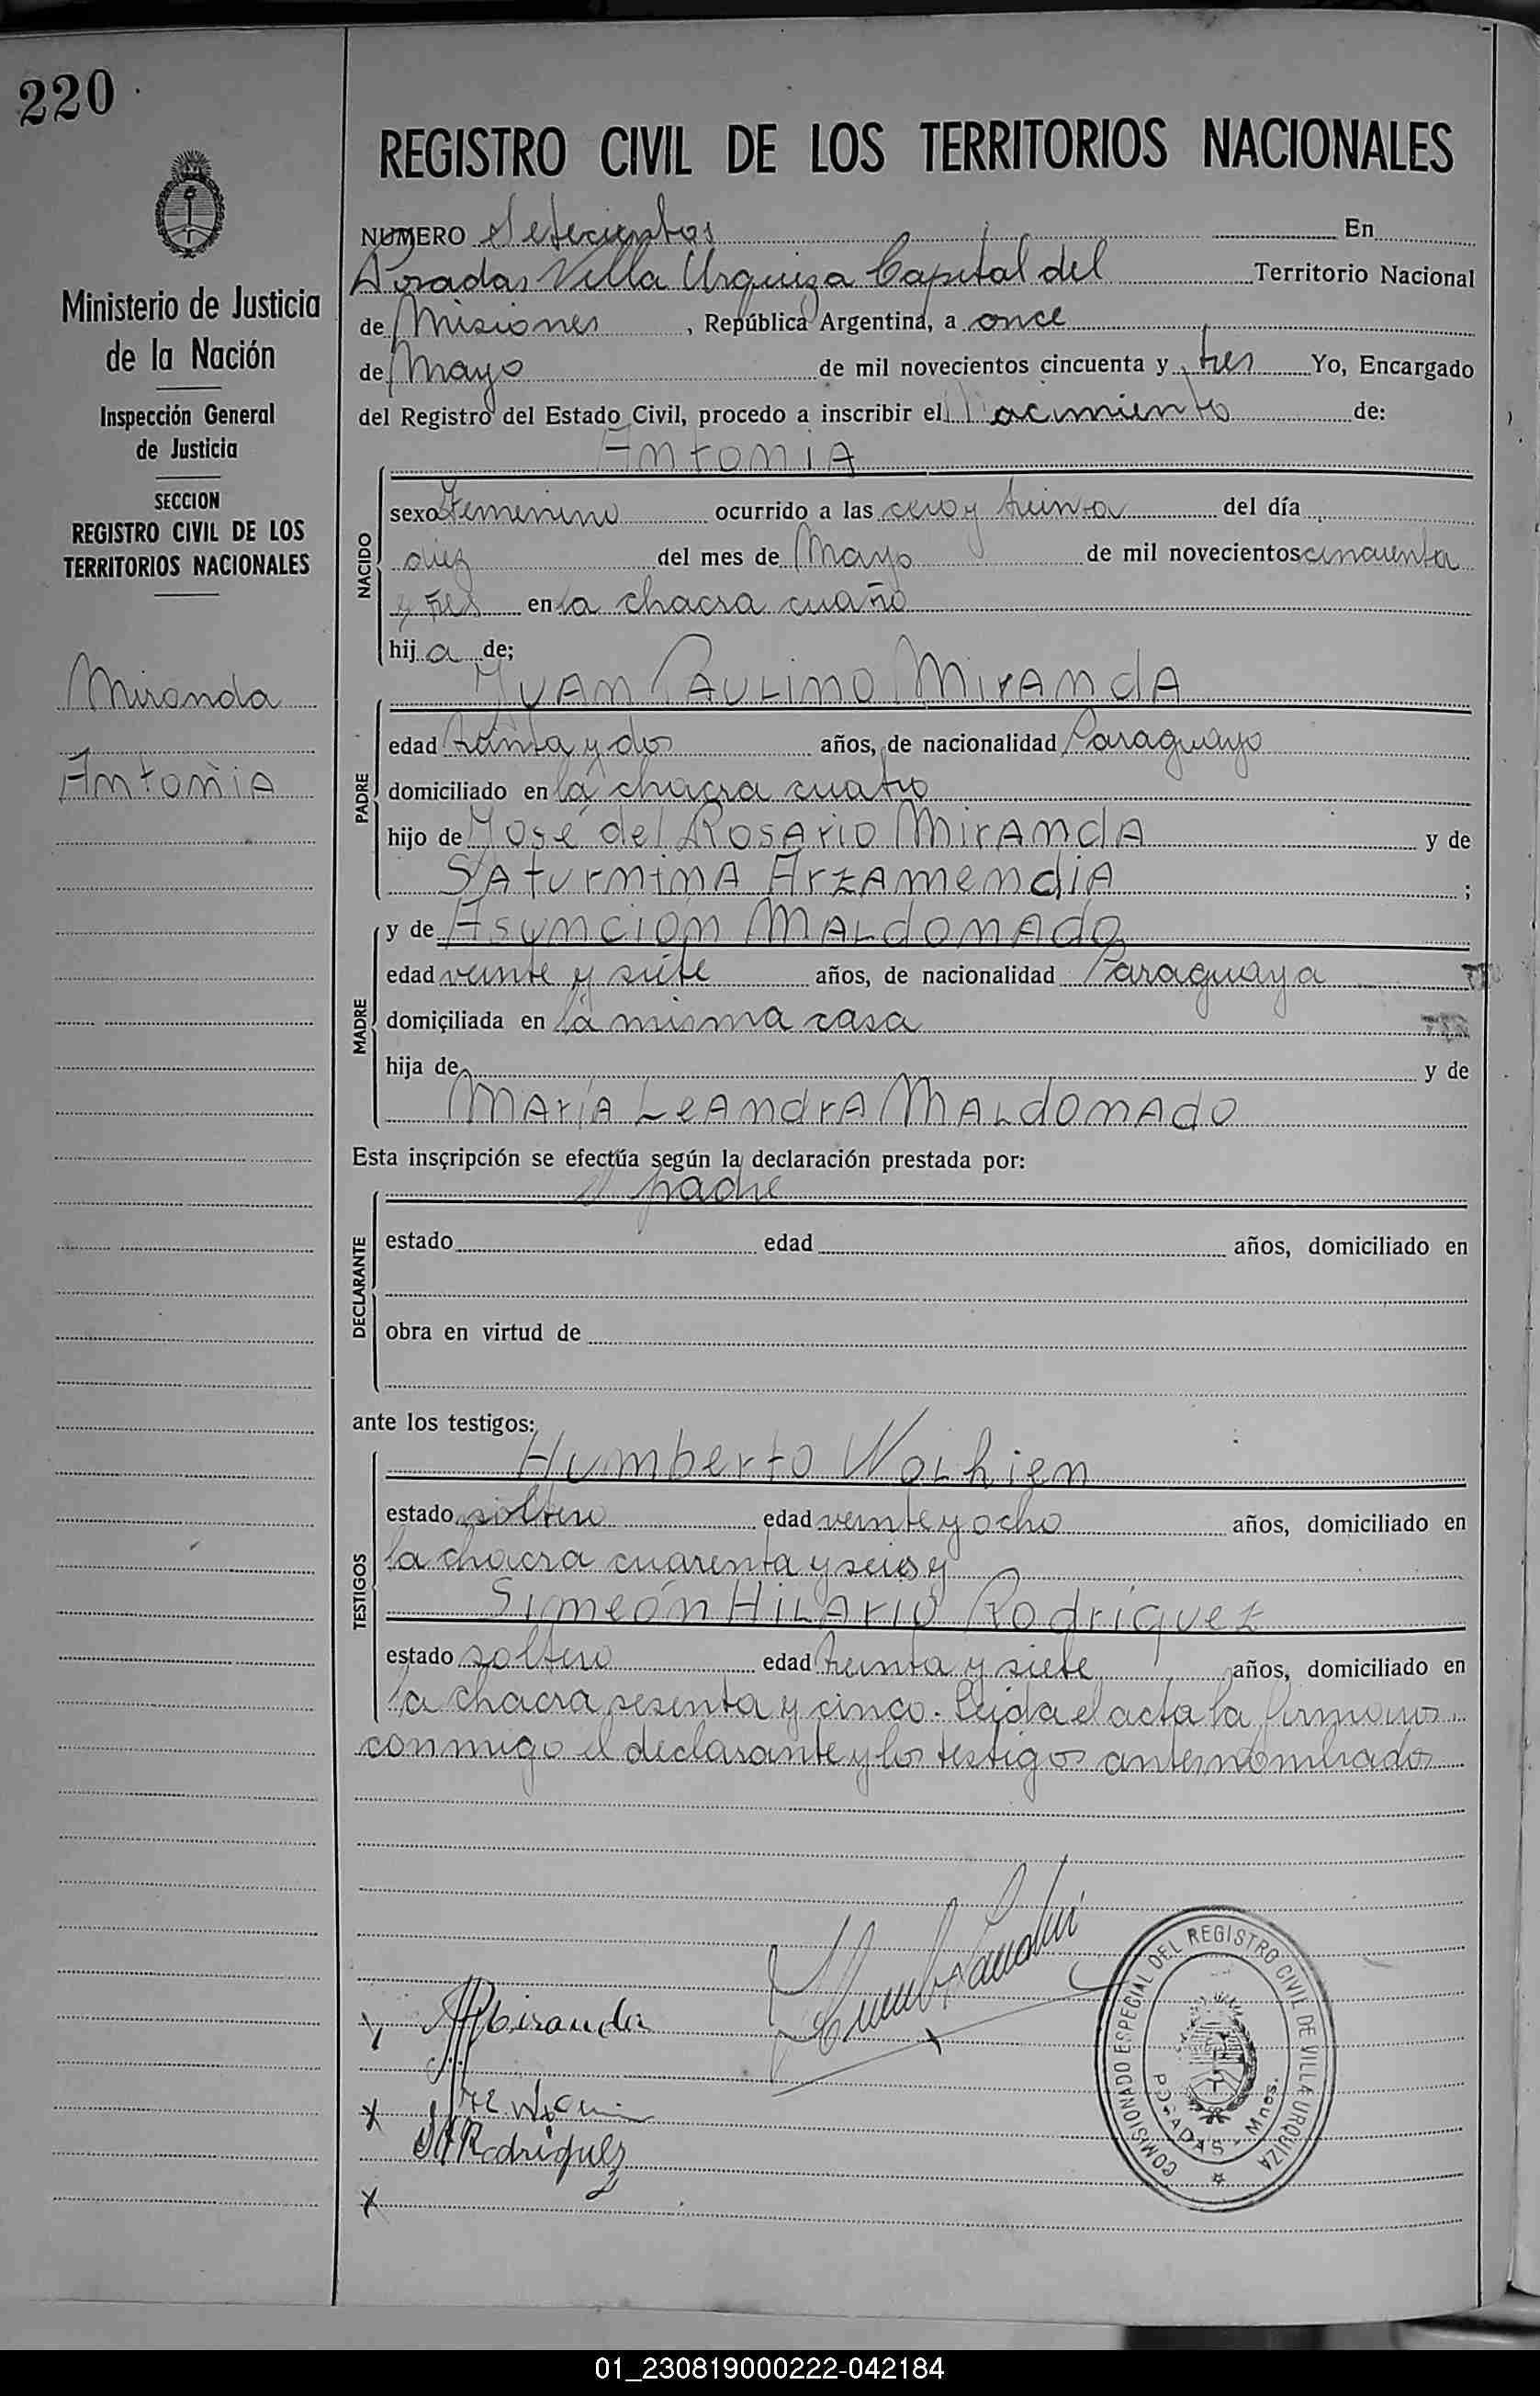 220
Ministerio de Justicia
de la Nación
Inspección General
de Justicia
SECCION
REGISTRO CIVIL DE LOS
TERRITORIOS NACIONALES
Miranda
Antonia
REGISTRO CIVIL DE LOS TERRITORIOS NACIONALES
NUMERO Setecientos En
Posadas Villa Urquiza Capital del Territorio Nacional
de Misiones, República Argentina, a once
de Mayo de mil novecientos cincuenta y tres Yo, Encargado
del Registro del Estado Civil, procedo a inscribir el Nacimiento de:
AntoniA
NACIDO
sexo Femenino ocurrido a las cero y treinta del día
diez del mes de Mayo de mil novecientos cincuenta
y tres en la chacra cuatro
hija de;
PADRE
JUAN PAULINO MIRANDA
edad treinta y dos años, de nacionalidad Paraguayo
domiciliado en la chacra cuatro
hijo de José del Rosario Miranda y de
Saturnina Arzamendia ;
MADRE
y de Asunción Maldonado
edad veinte y siete años, de nacionalidad Paraguaya
domiciliada en la misma casa
hija de y de
María Leandra Maldonado
Esta inscripción se efectúa según la declaración prestada por:
DECLARANTE
el padre
estado edad años, domiciliado en
obra en virtud de
ante los testigos:
TESTIGOS
Humberto
estado soltero edad veinte y ocho años, domiciliado en
la chacra cuarenta y seis y
Simeón Hilario Rodríguez
estado soltero edad treinta y siete años, domiciliado en
la chacra sesenta y cinco. Leida el acta la firmamos
conmigo el declarante y los testigos antes nombrados
Miranda
SHRodriguez
COMISIONADO ESPECIAL DEL REGISTRO CIVIL DE VILLA URQUIZA
POSADAS - Mnes.
01_230819000222-042184